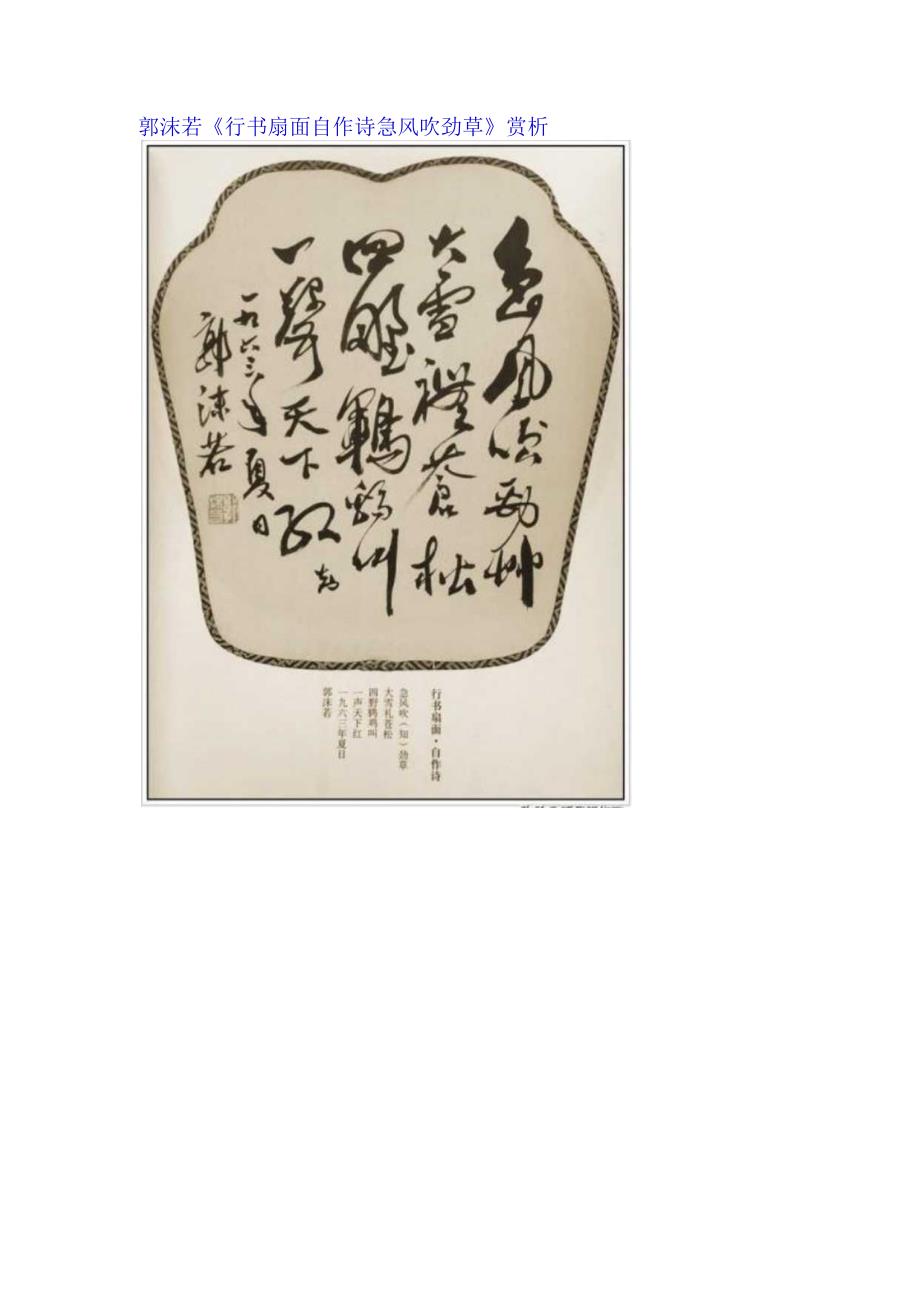 郭沫若《行书扇面自作诗急风吹劲草》赏析
急风吹劲草
大雪禮蒼松
四野鶤鷄叫
一聲天下紅
一九六三年夏日
郭沫若
行书扇面·自作诗
急风吹（知）劲草
大雪礼苍松
四野鹍鸡叫
一声天下红
一九六三年夏日
郭沫若